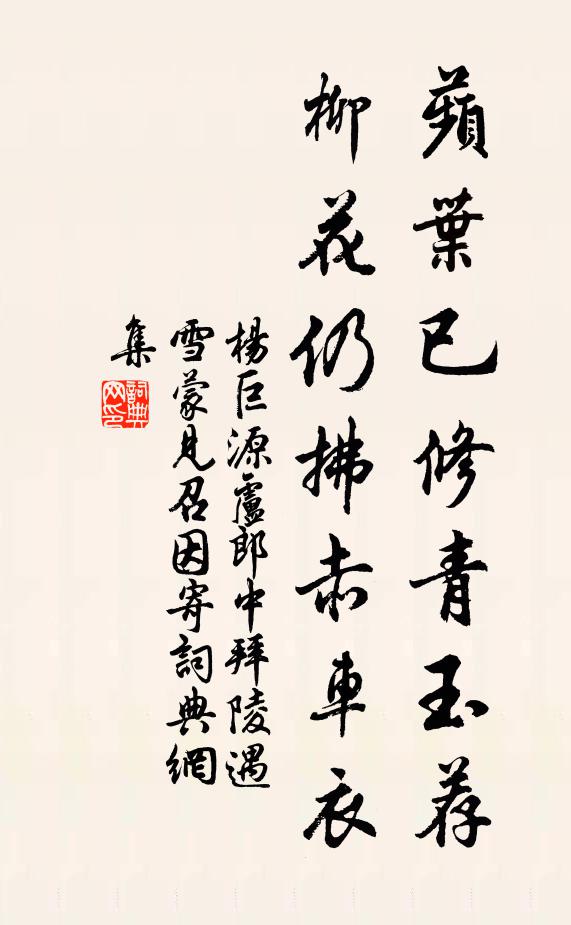 蘋葉已修青玉荐
柳花仍拂赤車衣
楊巨源盧郎中拜陵遇
雪蒙見召因寄詞典網
集
詞典
网印